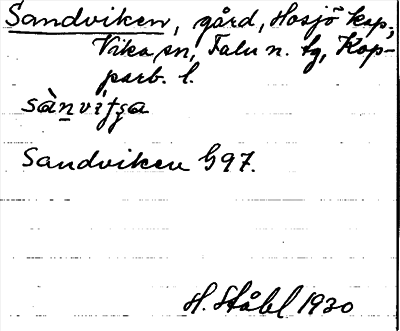 Sandviken, gård, Hosjö kap,
Vika sn, Falu n. tg, Kop-
parb. l.
Sandviken G 97.
H. Ståhl 1930